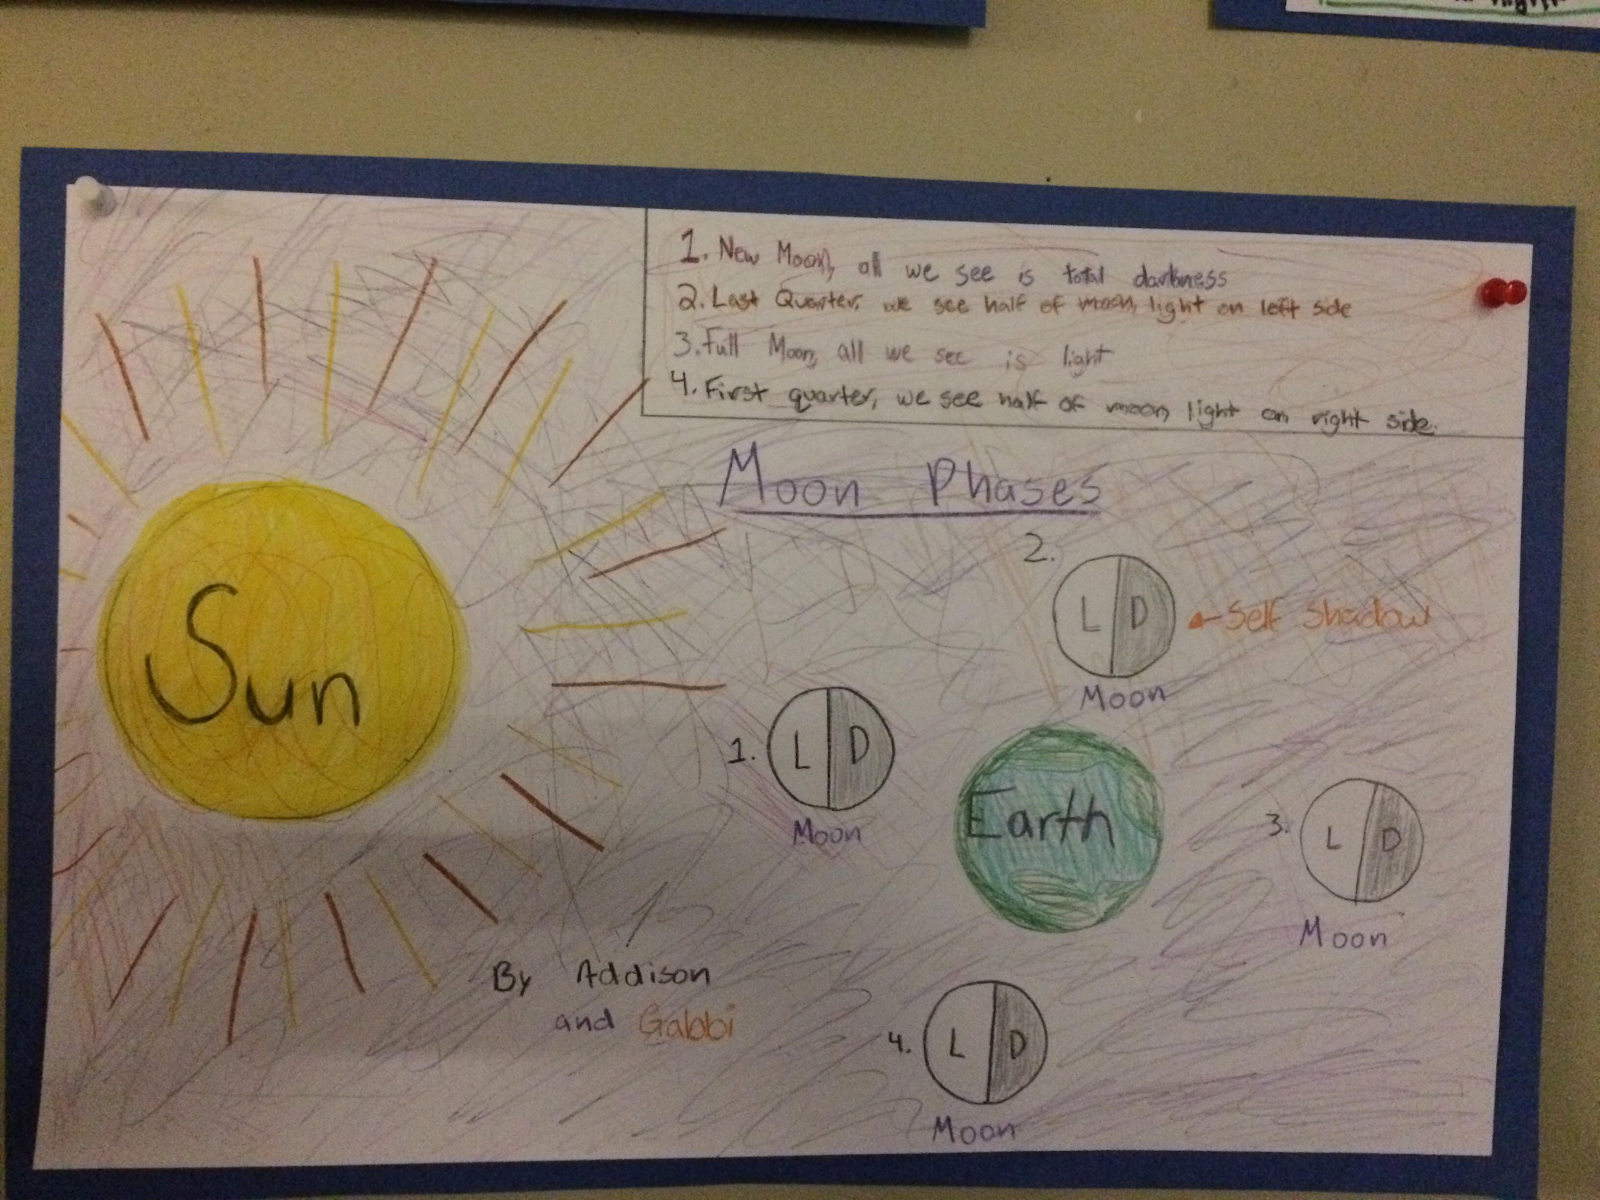 1. New Moon, all we see is total darkness
2. Last Quarter, we see half of moon, light on left side
3. Full Moon, all we see is light
4. First quarter, we see half of moon, light on right side.
Moon Phases
2.
L D
Self Shadow
Moon
Sun
1.
L D
Moon
Earth
3.
L D
Moon
By Addison
and Gabbi
4.
L D
Moon